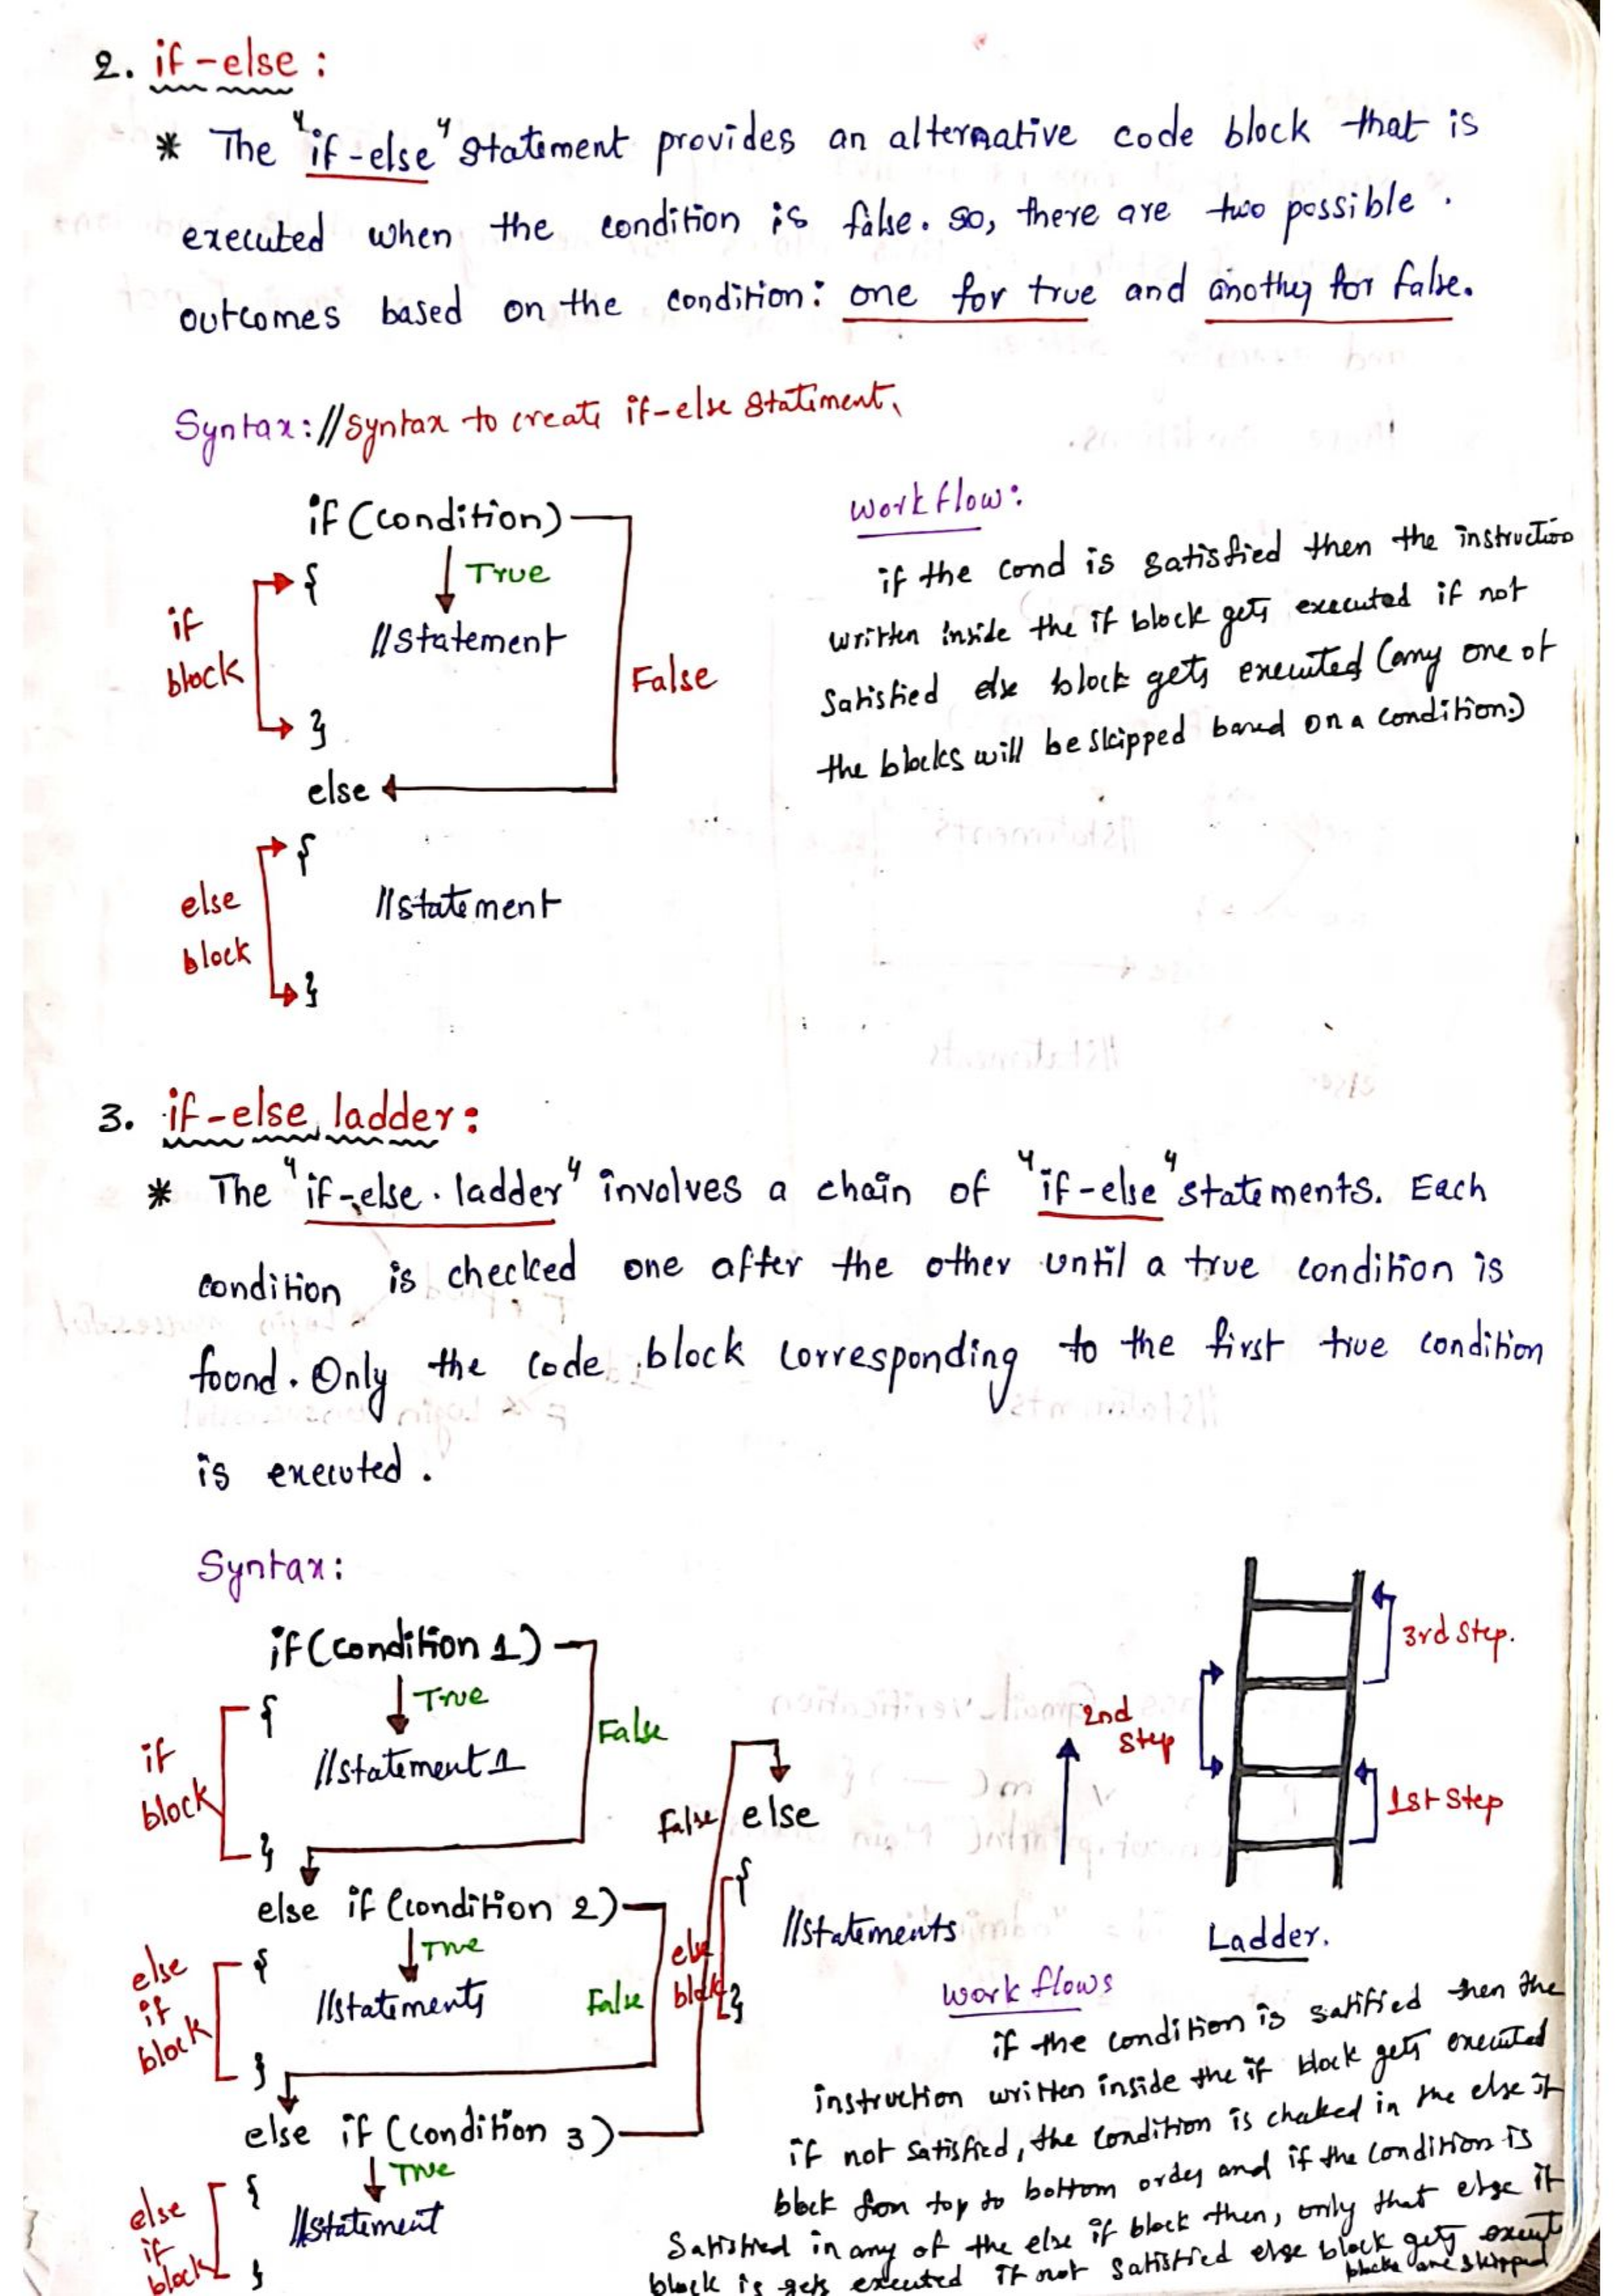 2. if-else :
* The "if-else" statement provides an alternative code block that is
executed when the condition is false. so, there are two possible .
outcomes based on the condition: one for true and another for false.
Syntax: //syntax to create if-else statement.
if (condition)
True
{
if
block
//statement
False
}
else
{
else
block
//statement
}
Workflow:
if the cond is satisfied then the instruction
written inside the if block gets executed if not
satisfied else block gets executed (any one of
the blocks will be skipped based on a condition.)
3. if-else ladder:
* The "if-else. ladder" involves a chain of "if-else" statements. Each
condition is checked one after the other until a true condition is
found. Only the code block corresponding to the first true condition
is executed .
Syntax:
if (condition 1)
True
{
if
block
//statement 1
False
}
else if (condition 2)
True
{
else
if
block
//statements
False
}
else if (condition 3)
True
{
else
if
block
//statement
}
False
else
{
else
block
//statements
}
3rd Step.
2nd
Step
1st Step
Ladder.
Work flows
if the condition is satified then the
instruction written inside the if block gets executed
if not satisfied, the condition is cheked in the else if
block from top to bottom order and if the condition is
Satisfied in any of the else if block then, only that else if
block is gets executed if not satisfied else block gets execut
blocks are skipped